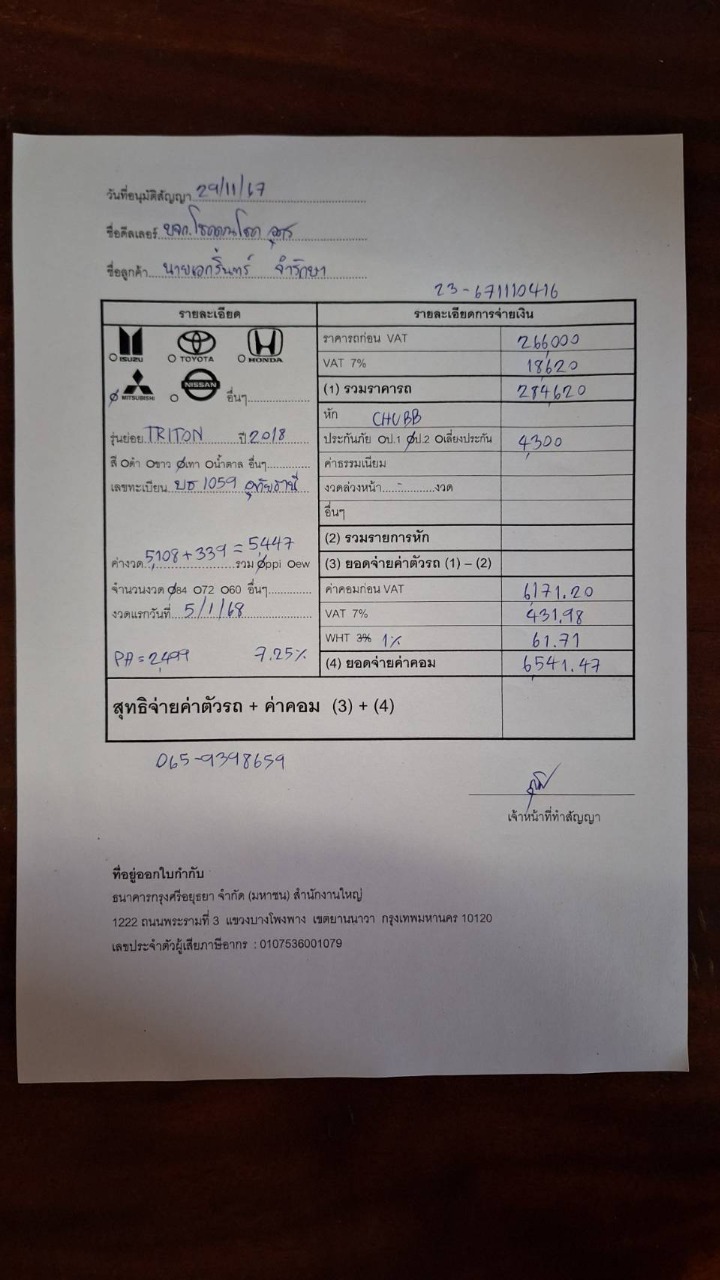 วันที่อนุมัติสัญญา 29/11/67
ชื่อดีลเลอร์ บจก.
ชื่อลูกค้า นายเอกรินทร์ จำรักษา
23-671110416
รายละเอียด รายละเอียดการจ่ายเงิน
ISUZU TOYOTA HONDA
MITSUBISHI NISSAN อื่นๆ
ราคารถก่อน VAT 266,000
VAT 7% 18,620
(1) รวมราคารถ 284,620
หัก CHUBB
รุ่นย่อย TRITON ปี 2018
ประกันภัย ป.1 ป.2 เลี่ยงประกัน 4,300
สี ดำ ขาว เทา น้ำตาล อื่นๆ
ค่าธรรมเนียม
เลขทะเบียน บธ 1059 อุทัยธานี
งวดล่วงหน้า งวด
อื่นๆ
(2) รวมรายการหัก
ค่างวด 5,108 + 339 = 5,447 รวม ppi ew
(3) ยอดจ่ายค่าตัวรถ (1) – (2)
จำนวนงวด 84 72 60 อื่นๆ
ค่าคอมก่อน VAT 6,171.20
งวดแรกวันที่ 5/1/68
VAT 7% 431.98
WHT 3% 1% 61.71
PA = 2,499 7.25%
(4) ยอดจ่ายค่าคอม 6,541.47
สุทธิจ่ายค่าตัวรถ + ค่าคอม (3) + (4)
065-9398659
เจ้าหน้าที่ทำสัญญา
ที่อยู่ออกใบกำกับ
ธนาคารกรุงศรีอยุธยา จำกัด (มหาชน) สำนักงานใหญ่
1222 ถนนพระรามที่ 3 แขวงบางโพงพาง เขตยานนาวา กรุงเทพมหานคร 10120
เลขประจำตัวผู้เสียภาษีอากร : 0107536001079